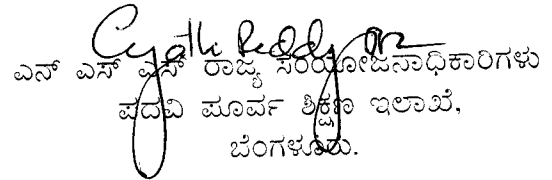 ಎನ್ ಎಸ್ ಎಸ್ ರಾಜ್ಯ ಸಂಯೋಜನಾಧಿಕಾರಿಗಳು
ಪದವಿ ಪೂರ್ವ ಶಿಕ್ಷಣ ಇಲಾಖೆ,
ಬೆಂಗಳೂರು.